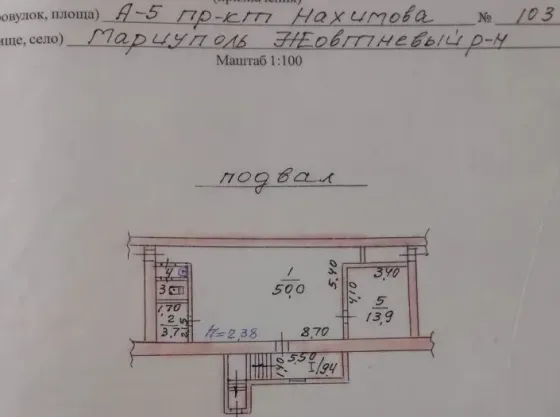 ровулок, площа) А-5 пр-кт Нахимова № 103
ище, село) Мариуполь Жовтневый р-н
Маштаб 1:100
подвал
4
1
50,0
5,40
3,40
3
4,10
5
13,9
1,70
2
3,7
2,15
h=2,38
8,70
5,50
1,40
I/9,4